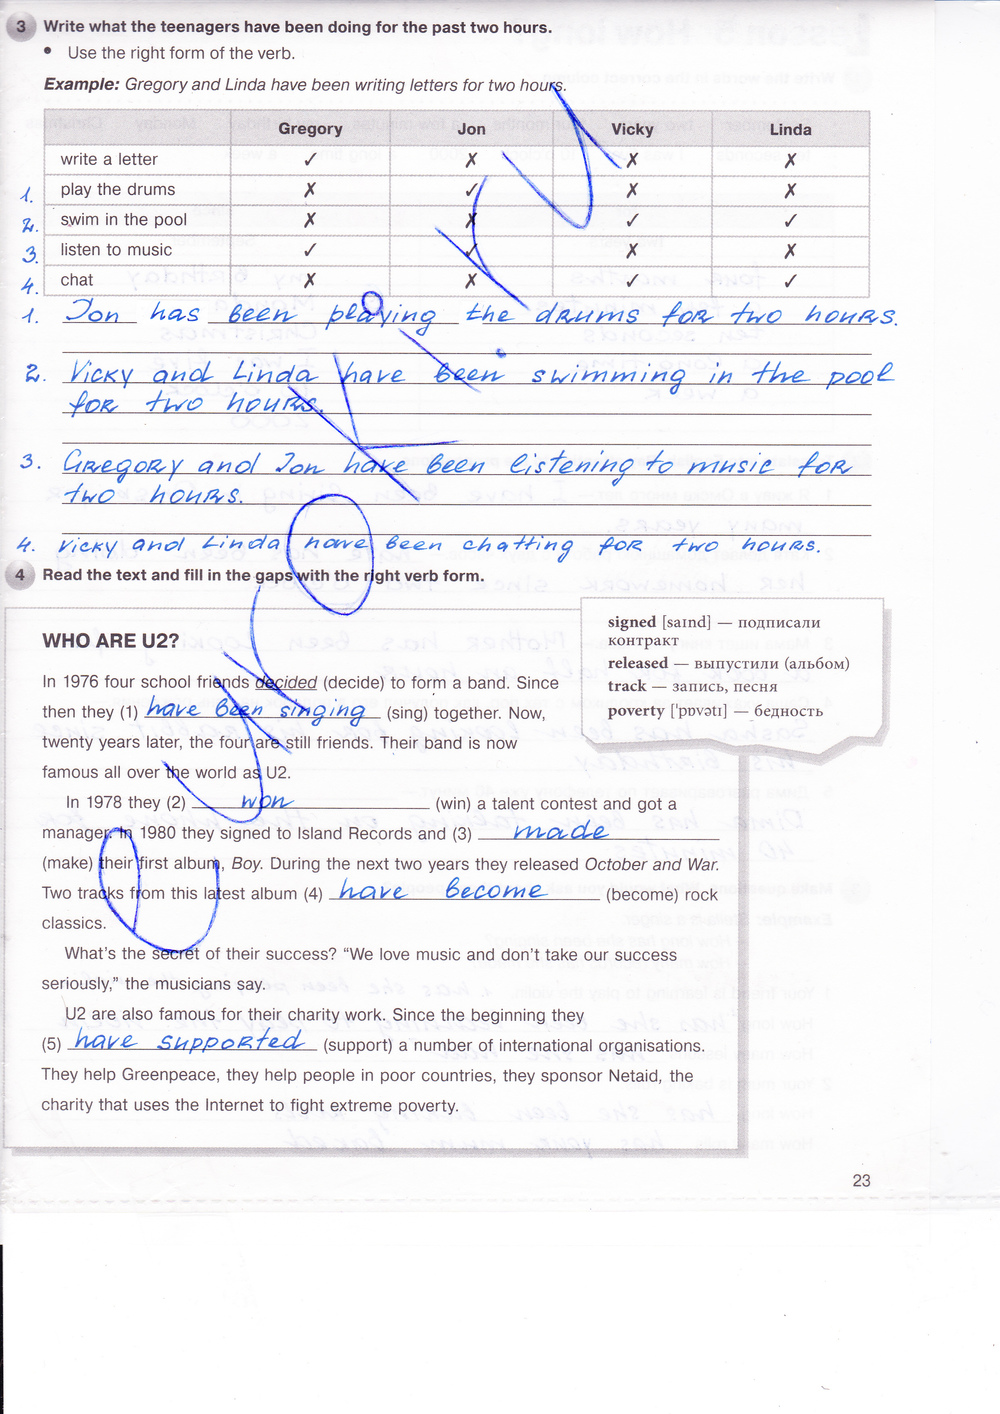 3 Write what the teenagers have been doing for the past two hours.
• Use the right form of the verb.
Example: Gregory and Linda have been writing letters for two hours.
Gregory Jon Vicky Linda
write a letter ✓ ✗ ✗ ✗
1. play the drums ✗ ✓ ✗ ✗
2. swim in the pool ✗ ✗ ✓ ✓
3. listen to music ✓ ✓ ✗ ✗
4. chat ✗ ✗ ✓ ✓
1. Jon has been playing the drums for two hours.
2. Vicky and Linda have been swimming in the pool
for two hours.
3. Gregory and Jon have been listening to music for
two hours.
4. Vicky and Linda have been chatting for two hours.
4 Read the text and fill in the gaps with the right verb form.
WHO ARE U2?
In 1976 four school friends decided (decide) to form a band. Since
then they (1) have been singing (sing) together. Now,
twenty years later, the four are still friends. Their band is now
famous all over the world as U2.
signed [saɪnd] — подписали
контракт
released — выпустили (альбом)
track — запись, песня
poverty [ˈpɒvətɪ] — бедность
In 1978 they (2) won (win) a talent contest and got a
manager. In 1980 they signed to Island Records and (3) made
(make) their first album, Boy. During the next two years they released October and War.
Two tracks from this latest album (4) have become (become) rock
classics.
What's the secret of their success? “We love music and don't take our success
seriously,” the musicians say.
U2 are also famous for their charity work. Since the beginning they
(5) have supported (support) a number of international organisations.
They help Greenpeace, they help people in poor countries, they sponsor Netaid, the
charity that uses the Internet to fight extreme poverty.
23